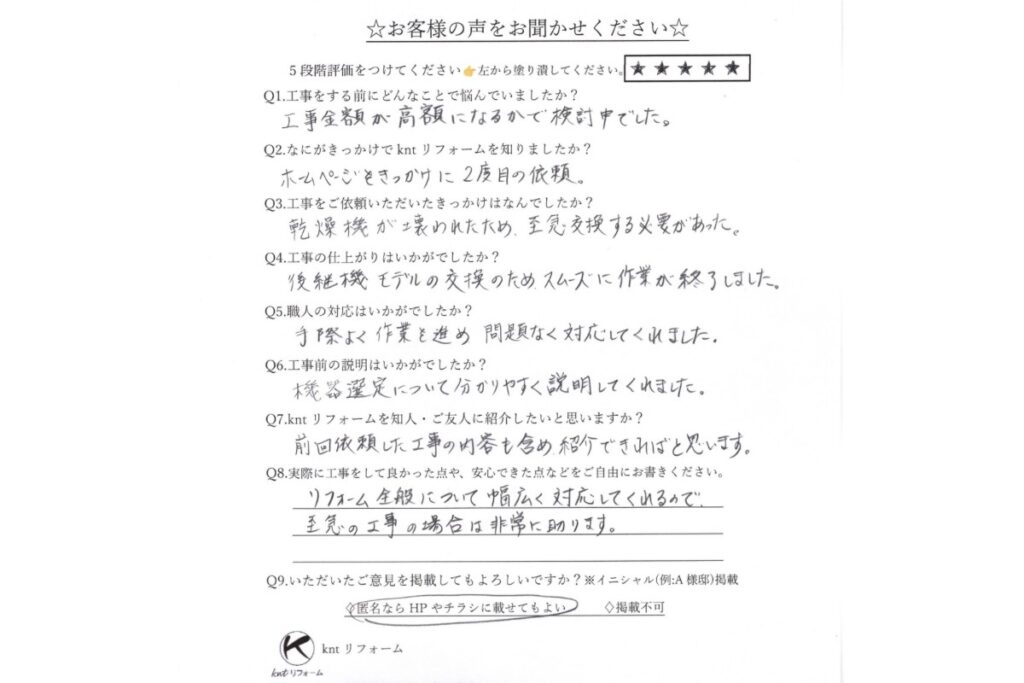 ☆お客様の声をお聞かせください☆
5段階評価をつけてください👉左から塗り潰してください。★★★★★
Q1.工事をする前にどんなことで悩んでいましたか？
工事金額が高額になるかで検討中でした。
Q2.なにがきっかけでkntリフォームを知りましたか？
ホームページをきっかけに2度目の依頼。
Q3.工事をご依頼いただいたきっかけはなんでしたか？
乾燥機が壊われたため、至急交換する必要があった。
Q4.工事の仕上がりはいかがでしたか？
後継機モデルの交換のためスムーズに作業が終了しました。
Q5.職人の対応はいかがでしたか？
手際よく作業を進め問題なく対応してくれました。
Q6.工事前の説明はいかがでしたか？
機器選定について分かりやすく説明してくれました。
Q7.kntリフォームを知人・ご友人に紹介したいと思いますか？
前回依頼した工事の内容も含め紹介できればと思います。
Q8.実際に工事をして良かった点や、安心できた点などをご自由にお書きください。
リフォーム全般について幅広く対応してくれるので、
至急の工事の場合は非常に助ります。
Q9.いただいたご意見を掲載してもよろしいですか？※イニシャル(例:A様邸)掲載
◇匿名ならHPやチラシに載せてもよい ◇掲載不可
K kntリフォーム
kntリフォーム